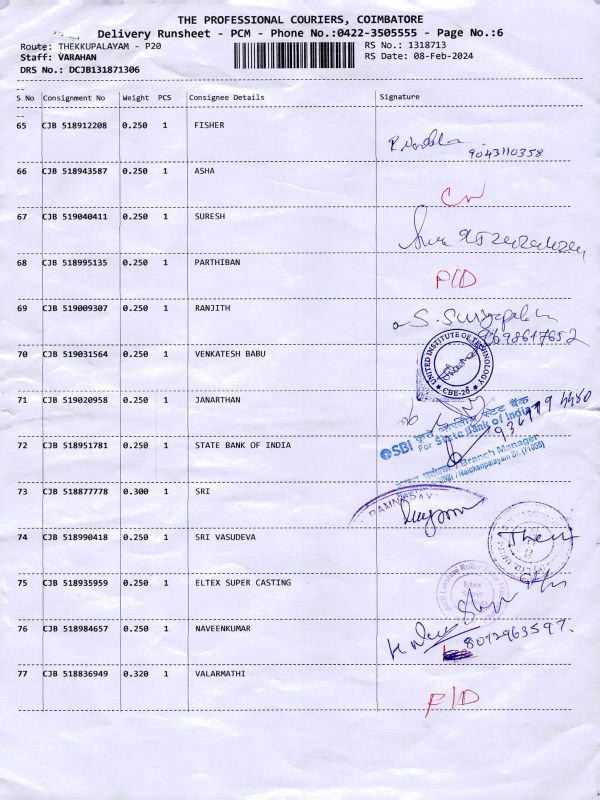 THE PROFESSIONAL COURIERS, COIMBATORE
Delivery Runsheet - PCM - Phone No.:0422-3505555 - Page No.:6
Route: THEKKUPALAYAM - P20
RS No.: 1318713
Staff: VARAHAN
RS Date: 08-Feb-2024
DRS No.: DCJB131871306
S No Consignment No Weight PCS Consignee Details Signature
65 CJB 518912208 0.250 1 FISHER
9043110358
66 CJB 518943587 0.250 1 ASHA
67 CJB 519040411 0.250 1 SURESH
68 CJB 518995135 0.250 1 PARTHIBAN
P/D
69 CJB 519009307 0.250 1 RANJITH
9698617652
70 CJB 519031564 0.250 1 VENKATESH BABU
UNITED INSTITUTE OF TECHNOLOGY
CBE-20
71 CJB 519020958 0.250 1 JANARTHAN
72 CJB 518951781 0.250 1 STATE BANK OF INDIA
SBI
For State Bank of India
Branch Manager
Naickenpalayam Br.
73 CJB 518877778 0.300 1 SRI
74 CJB 518990418 0.250 1 SRI VASUDEVA
75 CJB 518935959 0.250 1 ELTEX SUPER CASTING
76 CJB 518984657 0.250 1 NAVEENKUMAR
8072963597.
77 CJB 518836949 0.320 1 VALARMATHI
P/D